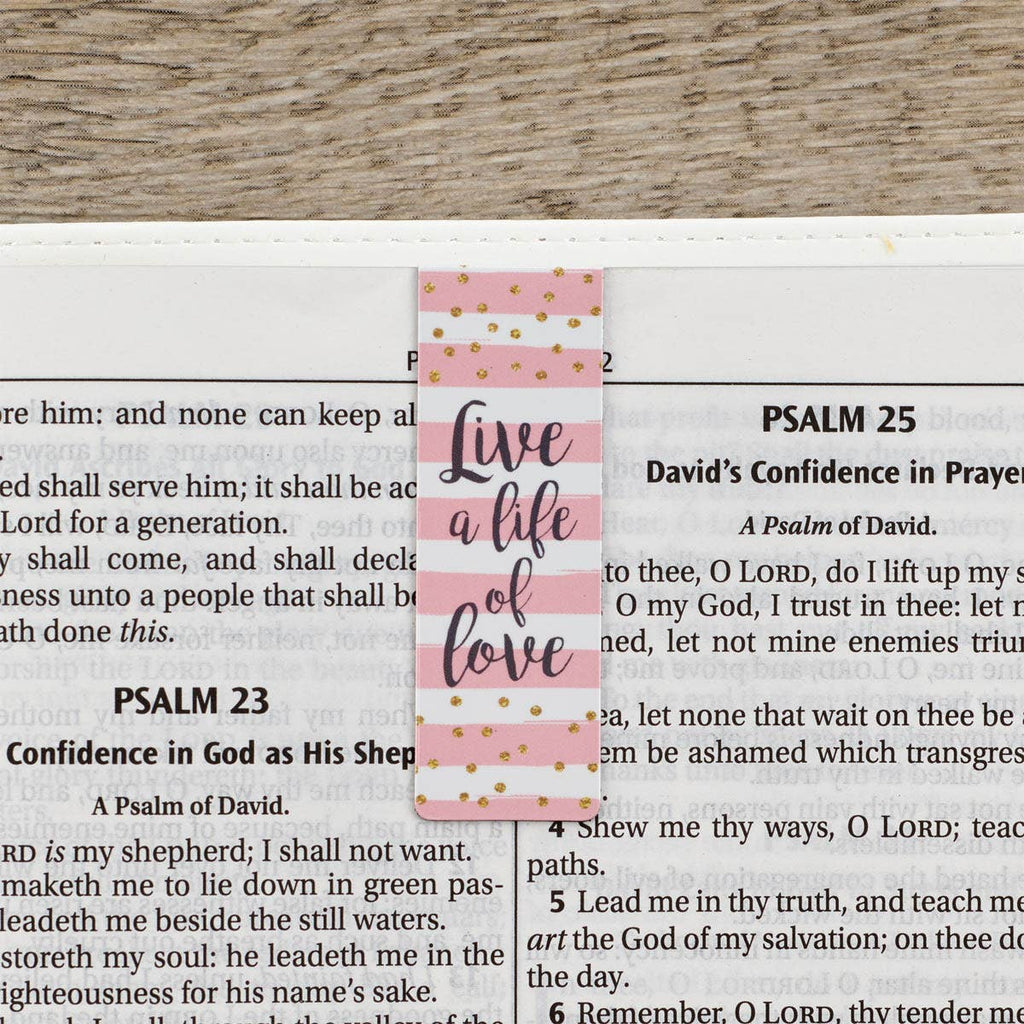 Live
a life
of
love
him: and none can keep
shall serve him; it shall be
Lord for a generation.
shall come, and shall
unto a people that shall
done this.
PSALM 23
Confidence in God as His
A Psalm of David.
is my shepherd; I shall not want.
maketh me to lie down in green pas-
leadeth me beside the still waters.
my soul: he leadeth me in the
for his name's sake.
PSALM 25
David's Confidence in
A Psalm of David.
to thee, O LORD, do I lift up my
O my God, I trust in thee: let
let not mine enemies
let none that wait on thee be
be ashamed which
4 Shew me thy ways, O LORD;
paths.
5 Lead me in thy truth, and teach me
art the God of my salvation; on thee
the day.
6 Remember, O LORD, thy tender